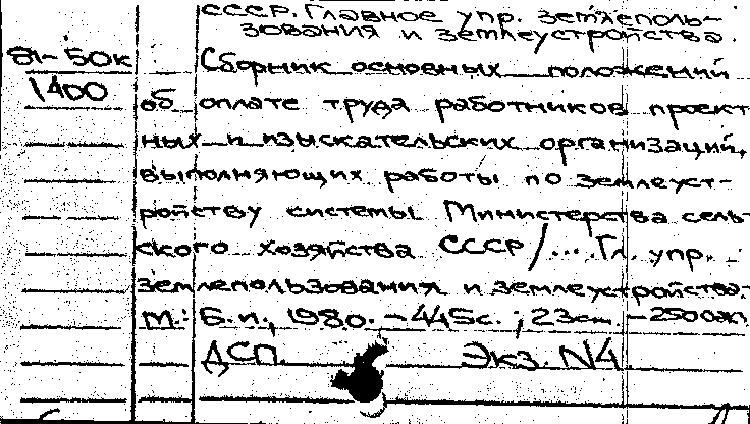 СССР. Главное упр. землеполь-
зования и землеустройства.
81-50к Сборник основных положений
1400
об оплате труда работников проект
ных и изыскательских организаций,
выполняющих работы по землеуст-
ройству системы Министерства сель-
ского хозяйства СССР/....Гл. упр.
землепользования и землеустройства.
М.: Б.и., 1980. - 445с. ; 23см. - 2500экз
ДСП. Экз. N4